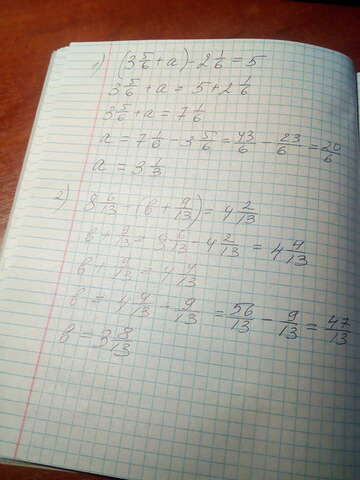 1) (3 5/6 + a) - 2 1/6 = 5
3 5/6 + a = 5 + 2 1/6
3 5/6 + a = 7 1/6
a = 7 1/6 - 3 5/6 = 43/6 - 23/6 = 20/6
a = 3 1/3
2) 8 6/13 - (b + 9/13) = 4 2/13
b + 9/13 = 8 6/13 - 4 2/13 = 4 4/13
b + 9/13 = 4 4/13
b = 4 4/13 - 9/13 = 56/13 - 9/13 = 47/13
b = 3 8/13